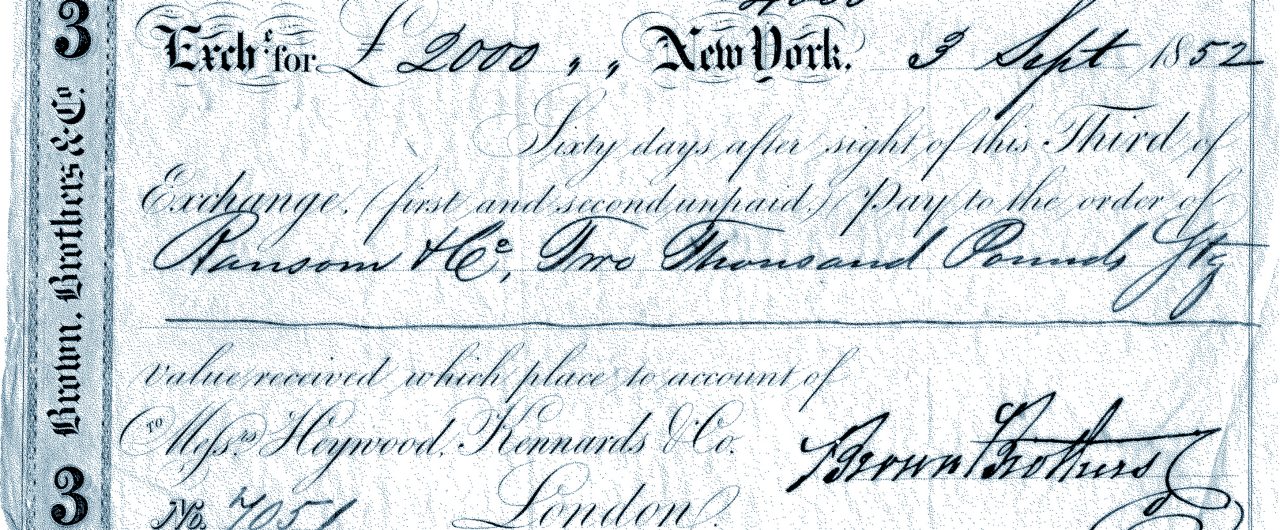 3
Brown, Brothers & Co.
3
Exche for £ 2000 " " New York. 3 Sept 1852
Sixty days after sight of this Third of
Exchange, (first and second unpaid,) Pay to the order of
Ransom & Co, Two Thousand Pounds Stg
value received which place to account of
To Messrs Heywood, Kennards & Co.
Brown Brothers
No. 7051 London